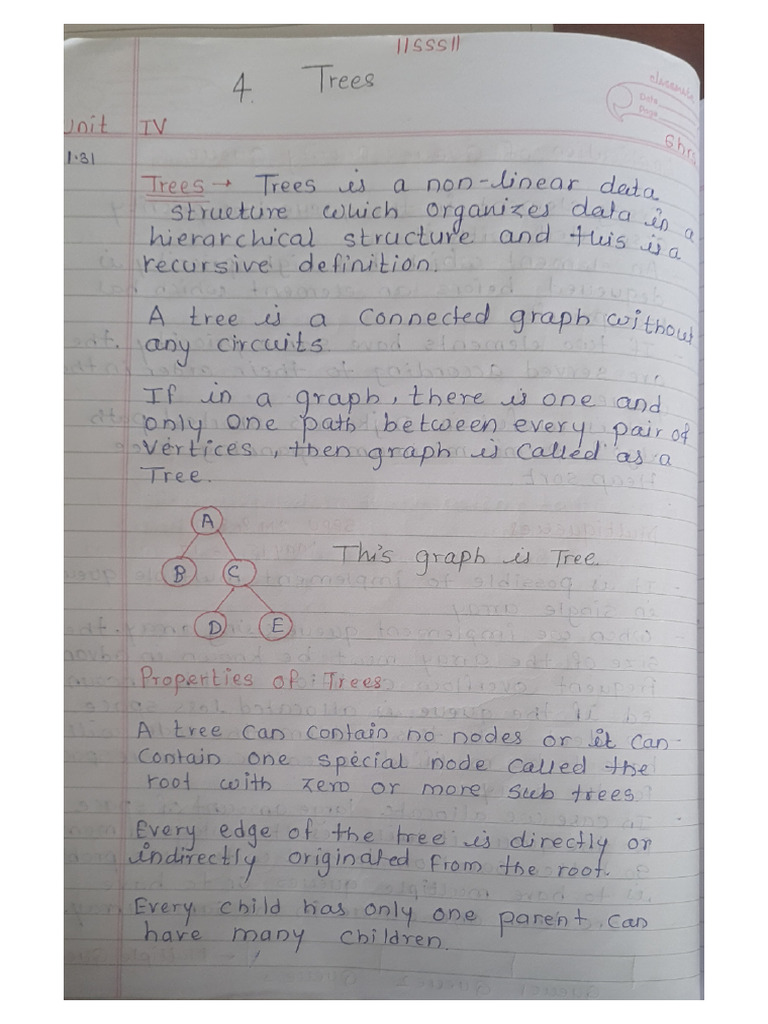 ||SSS||
4. Trees
classmate
Date
Page
Unit IV
6hrs
1.31
Trees → Trees is a non-linear data
structure which organizes data in a
hierarchical structure and this is a
recursive definition.
A tree is a connected graph without
any circuits
If in a graph, there is one and
only one path between every pair of
vertices, then graph is called as a
Tree.
A
B C
This graph is Tree.
D E
Properties of Trees
A tree can contain no nodes or it can
contain one special node called the
root with zero or more sub trees
Every edge of the tree is directly or
indirectly originated from the root.
Every child has only one parent can
have many children.